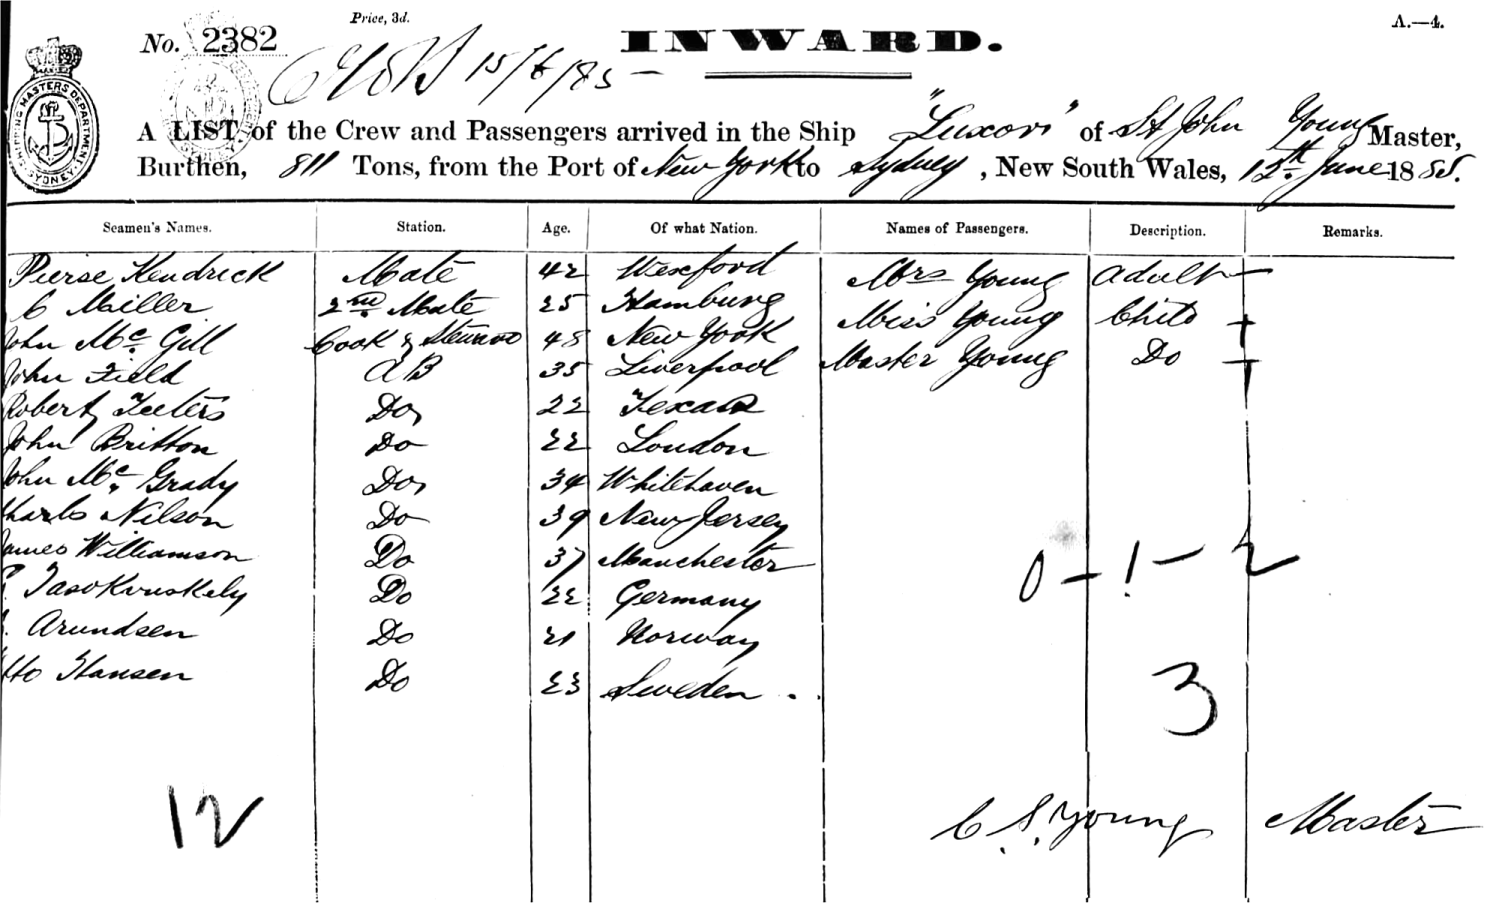 Price, 3d.
A.—4.
No. 2382
INWARD.
15/6/85
SHIPPING MASTERS DEPARTMENT SYDNEY
A LIST of the Crew and Passengers arrived in the Ship "Luxor" of St John Young Master,
Burthen, 811 Tons, from the Port of New York to Sydney, New South Wales, 12th June 1885.
Seamen's Names. Station. Age. Of what Nation. Names of Passengers. Description. Remarks.
Pierse Kendrick Mate 42 Wexford Mrs Young adult
C Miller 2nd Mate 25 Hamburg Miss Young Child
John Mc Gill Cook & Steward 48 New York Master Young Do
John Field AB 35 Liverpool
Robert Teeters Do 22 Texas
John Britton Do 22 London
John Mc Grady Do 34 Whitehaven
Charls Nilson Do 39 New Jersey
James Williamson Do 37 Manchester
Do 22 Germany
Arundsen Do 21 Norway
Otto Hansen Do 23 Sweden
0 - 1 - 2
3
12
C. S. Young Master